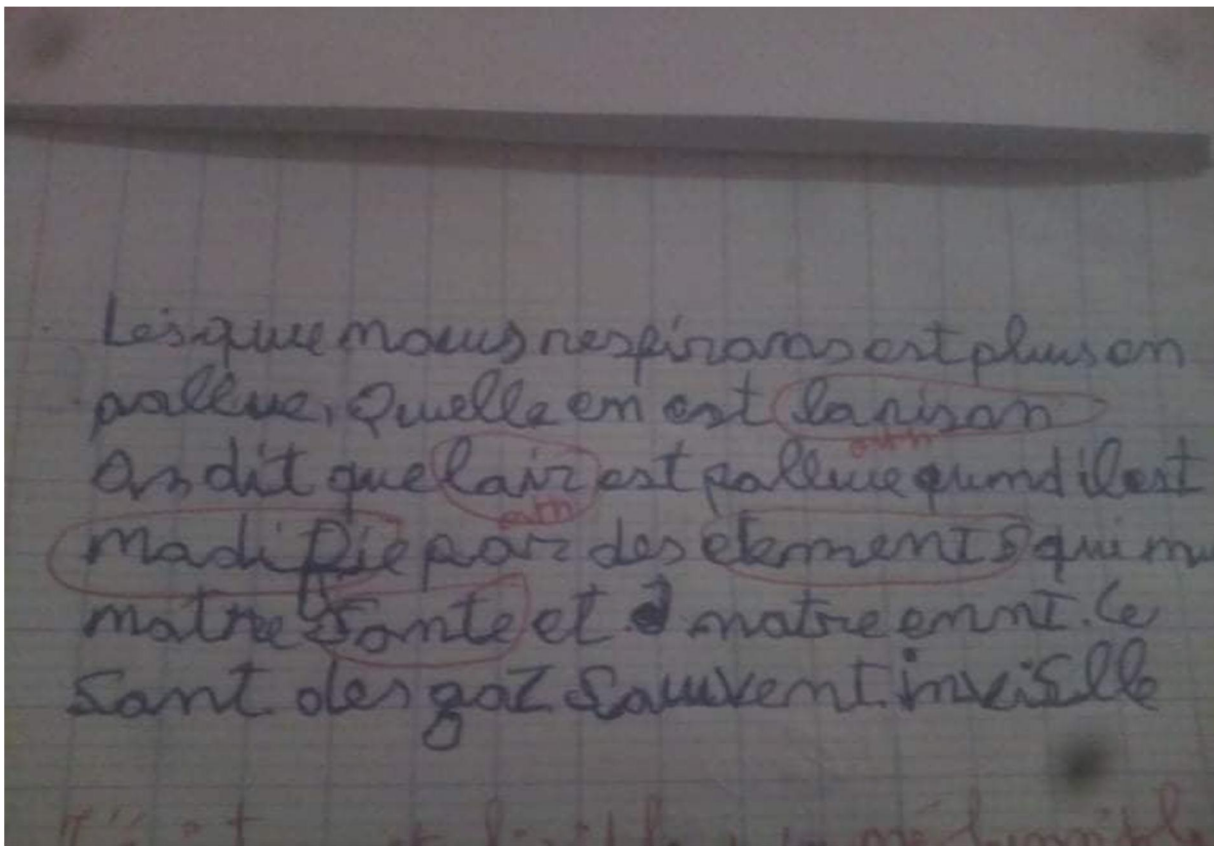 Lesque nous respirons est plus en
pollue, Quelle en est la rison
On dit que lair est pollue quand il est
modifie par des elements qui nu
notre sante et notre ennt. Ce
Sont des gaz Souvent inviselle